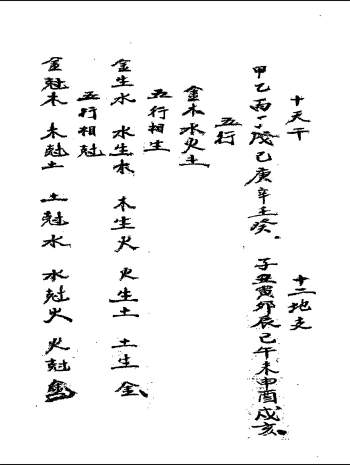 十天干　十二地支
甲乙丙丁戊己庚辛壬癸．　子丑寅卯辰巳午未申酉戌亥．
五行
金木水火土
五行相生
金生水　水生木　木生火　火生土　土生金
五行相尅
金尅木　木尅土　土尅水　水尅火　火尅金